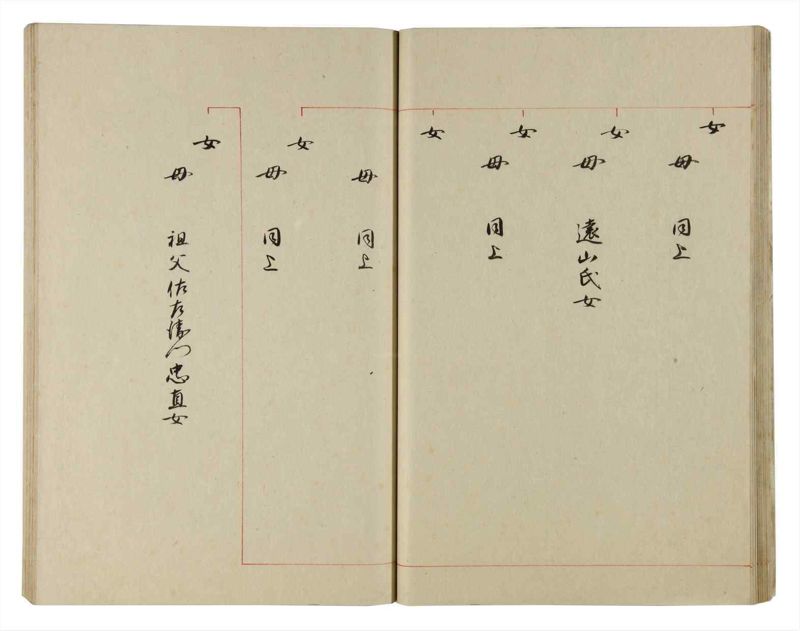 女
母 同上
女
母 遠山氏女
女
母 同上
女
母 同上
女
母 同上
女
母 祖父佐左衛門忠直女